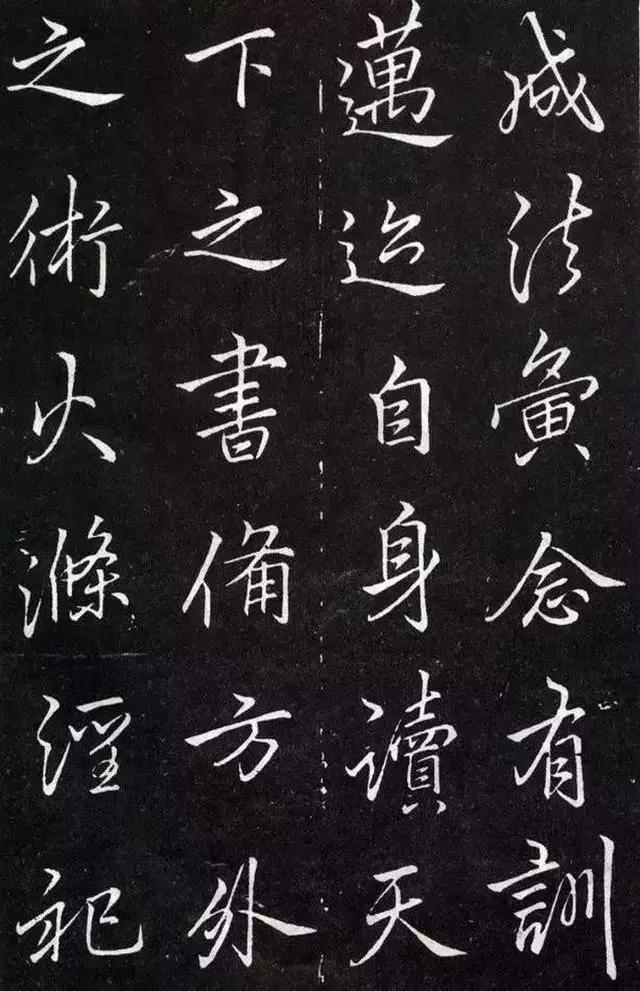 成法夤念有訓
邁迹自身讀天
下之書備方外
之術火滌淫祀